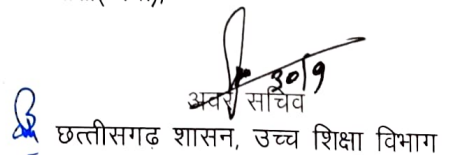 30/9
अवर सचिव
छत्तीसगढ़ शासन, उच्च शिक्षा विभाग